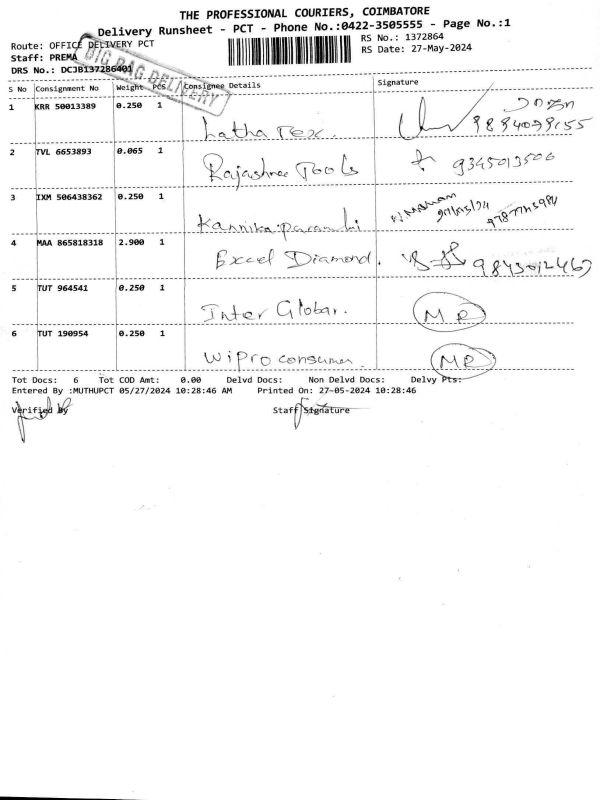 THE PROFESSIONAL COURIERS, COIMBATORE
Delivery Runsheet - PCT - Phone No.:0422-3505555 - Page No.:1
Route: OFFICE DELIVERY PCT
RS No.: 1372864
Staff: PREMA
RS Date: 27-May-2024
DRS No.: DCJB137286401
BIG BAG DELIVERY
S No Consignment No Weight PCS Consignee Details Signature
1 KRR 50013389 0.250 1 Latha Tex.
2 TVL 6653893 0.065 1 Rajashree Tools 9345013506
3 IXM 506438362 0.250 1 Kannika parameshi 27/05/24
4 MAA 865818318 2.900 1 Excel Diamond.
5 TUT 964541 0.250 1 Inter Global. MR
6 TUT 190954 0.250 1 Wipro consumer. MR
Tot Docs: 6 Tot COD Amt: 0.00 Delvd Docs: Non Delvd Docs: Delvy Pts:
Entered By :MUTHUPCT 05/27/2024 10:28:46 AM Printed On: 27-05-2024 10:28:46
Verified By Staff Signature